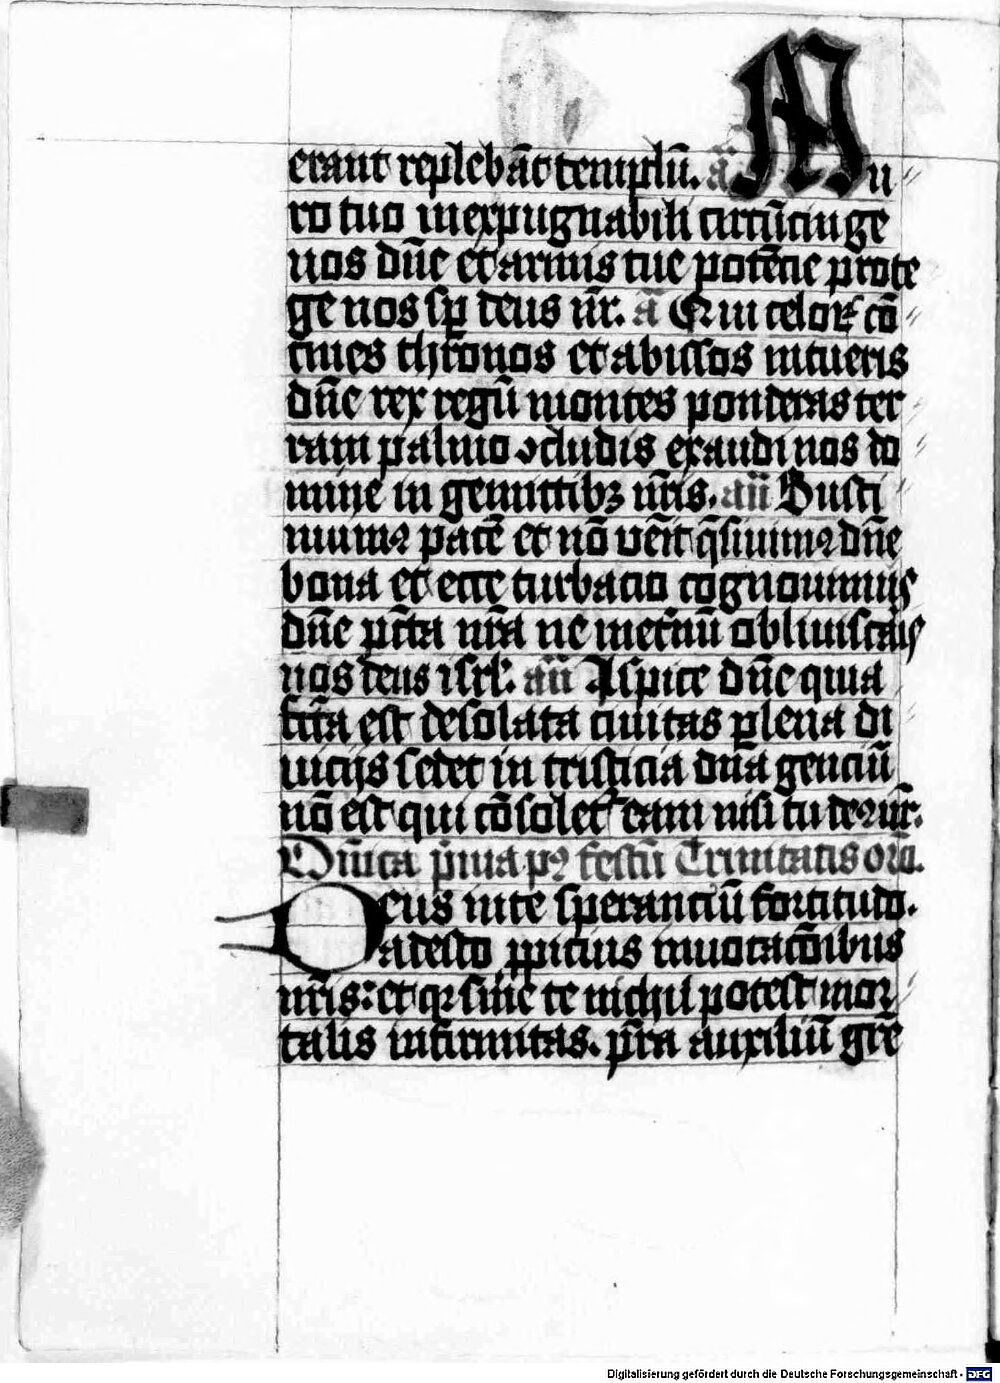 erant replebāt templū. ā Mu
ro tuo inexpugnabili circūcinge
nos dn̄e et armis tue potēcie prote
ge nos sꝑ deus nr̄. ā Qui celoꝝ cō
tines thronos et abissos intueris
dn̄e rex regū montes ponderas ter
ram palmo ↄcludis exaudi nos do
mine in gemitibꝫ nr̄is. an̄ Susti
nuimꝰ pacē et nō vēit q̄siuimꝰ dn̄e
bona et ecce turbacio cognouimus
dn̄e pc̄ta nr̄a ne ineternū obliuiscaris
nos deus isrl̄. an̄ Aspice dn̄e quia
fc̄ta est desolata ciuitas plena di
uicijs sedet in tristicia dn̄a genciū
nō est qui cōsolet᷑ eam nisi tu deꝰ nr̄.
Dn̄ica p̄ma pꝰ festū Trinitatis orō.
Deus inte speranciū fortitudo.
adesto ꝓpicius inuocacōibus
nr̄is: et qꝛ sine te nichil potest mor
talis infirmitas. p̄sta auxiliū gr̄e
Digitalisierung gefördert durch die Deutsche Forschungsgemeinschaft - DFG